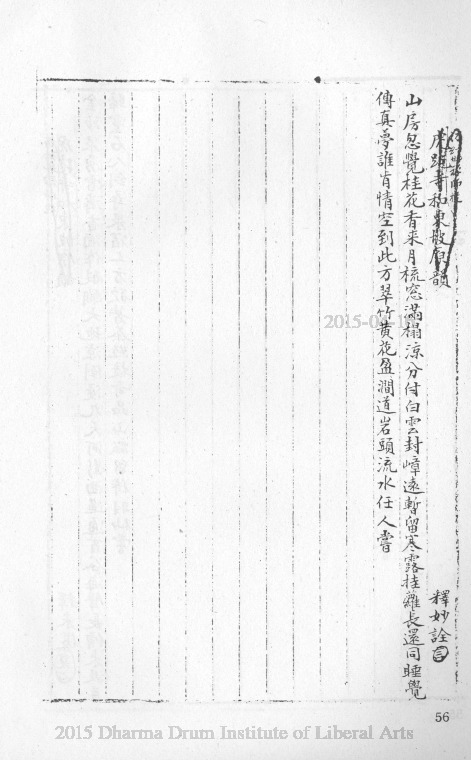 虎跑寺和東坡原韻
釋妙詮
山房忽覺桂花香来月梳窓滿榻涼分付白雲封嶂遠暫留寒露挂蘿長還同睡覺
傳真夢誰肯情空到此方翠竹黄花盈澗道岩頭流水任人嘗
56
2015 Dharma Drum Institute of Liberal Arts